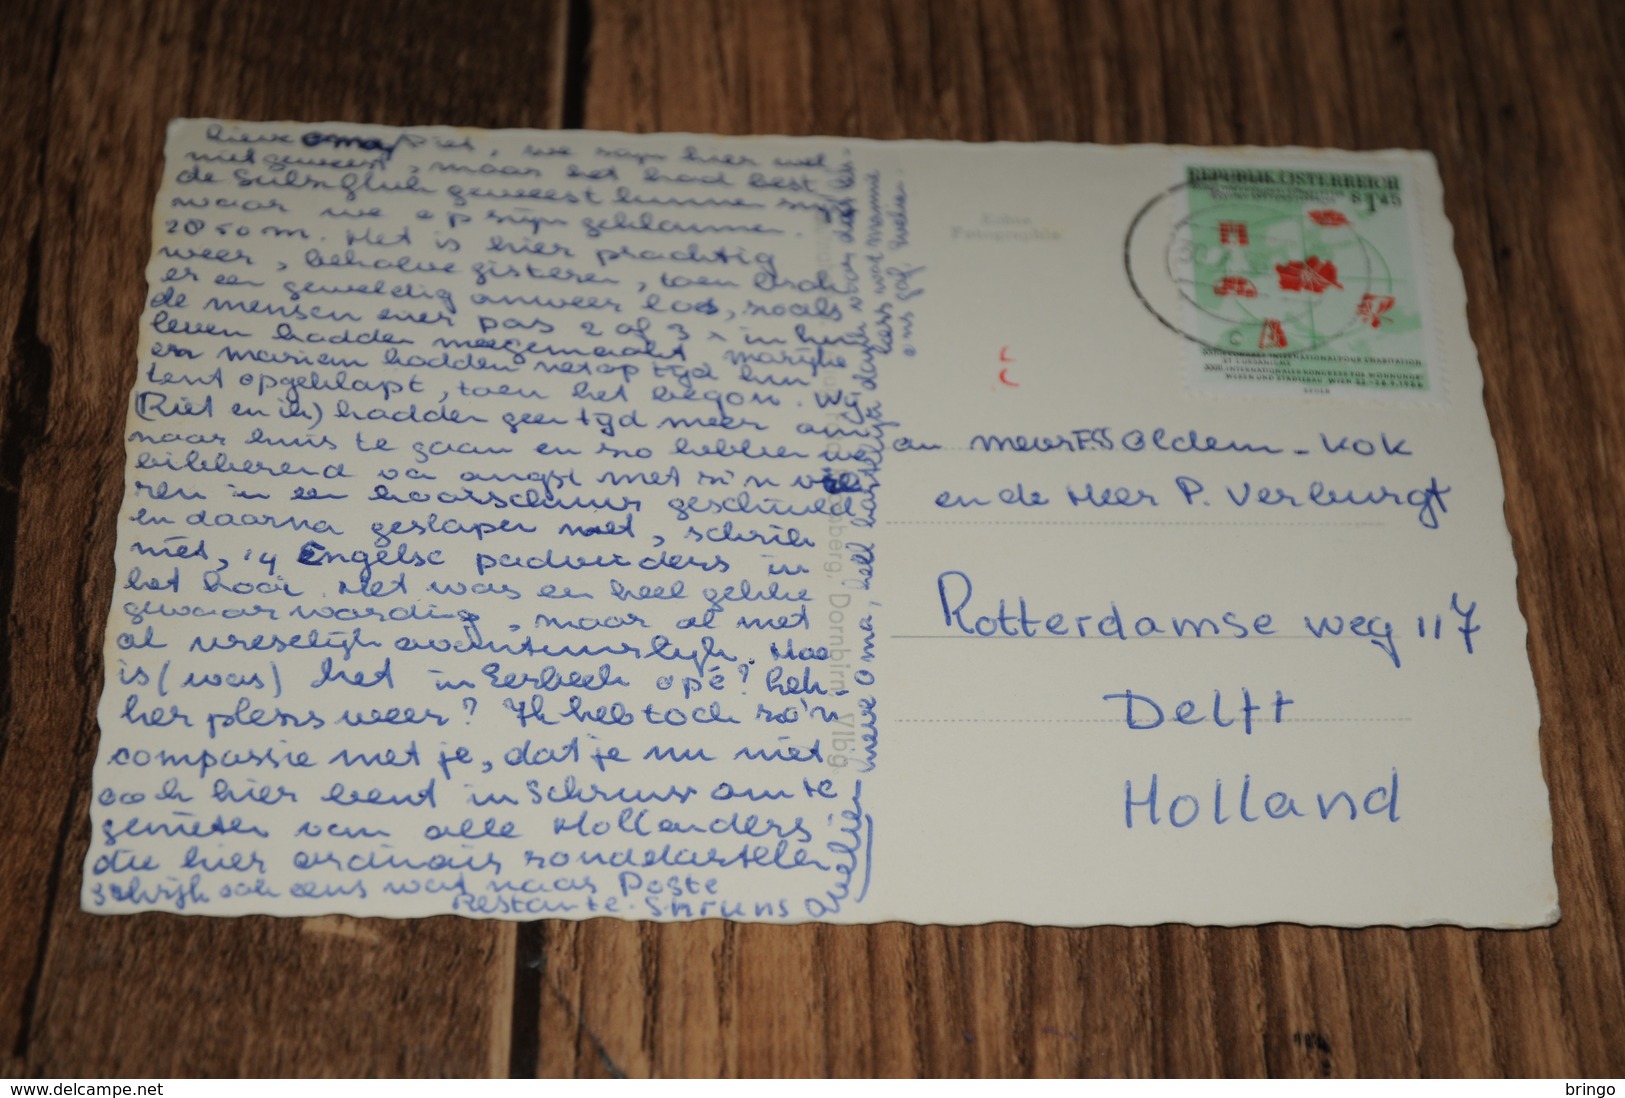 lieve oma/Piet, we zijn hier wel
niet geweest, maar het had best
de geweest kunnen zijn
waar we op zijn geklommen.
2850 m. Het is hier prachtig
weer, behalve gisteren, toen brak
er een geweldig onweer los, zoals
de mensen hier pas 2 of 3 x in hun
leven hadden meegemaakt. Marijke
en Mariem hadden net op tijd hun
tent opgeklapt, toen het begon. Wij
(Riet en ik) hadden geen tijd meer om
naar huis te gaan en zo hebben we
bibberend van angst met z'n
in een geschuild
en daarna geslapen met, schrik
niet, 14 Engelse padvinders in
het hooi. Het was een heel gekke
gewaarwording, maar al met
al vreselijk avontuurlijk. Hoe
is (was) het in Eerbeek opé? lek-
ker plens weer? Ik heb toch zo'n
compassie met je, dat je nu niet
ook hier bent in Schruns om te
genieten van alle Hollanders
die hier ordinair ronddartelen
schrijf ook eens wat naar Poste
Restante. Shruns
lieve oma, heel hartelijk
ons gaf.
Echte
Fotographie
Dornbirn, Vlbg.
REPUBLIK ÖSTERREICH
S 1,45
XXIII. INTERNATIONALER KONGRESS FÜR WOHNUNGS-
WESEN UND STÄDTEBAU
an mevr Oldem-Kok
en de Heer P. Verburgt
Rotterdamse weg 117
Delft
Holland
www.delcampe.net
bringo